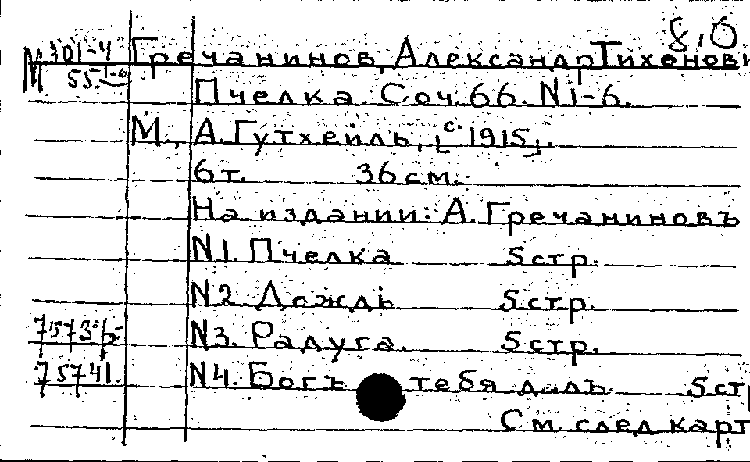 8,0
М 301-4 Гречанинов, Александр Тихонови
55 Пчелка Соч. 66. N1-6.
М., А. Гутхейль, [с. 1915].
6т. 36 см.
На издании: А. Гречаниновъ
N1. Пчелка 5 стр.
N2. Дождь 5 стр.
N3. Радуга. 5 стр.
75741. N4. Богъ тебя далъ. 5 ст
См. след карт